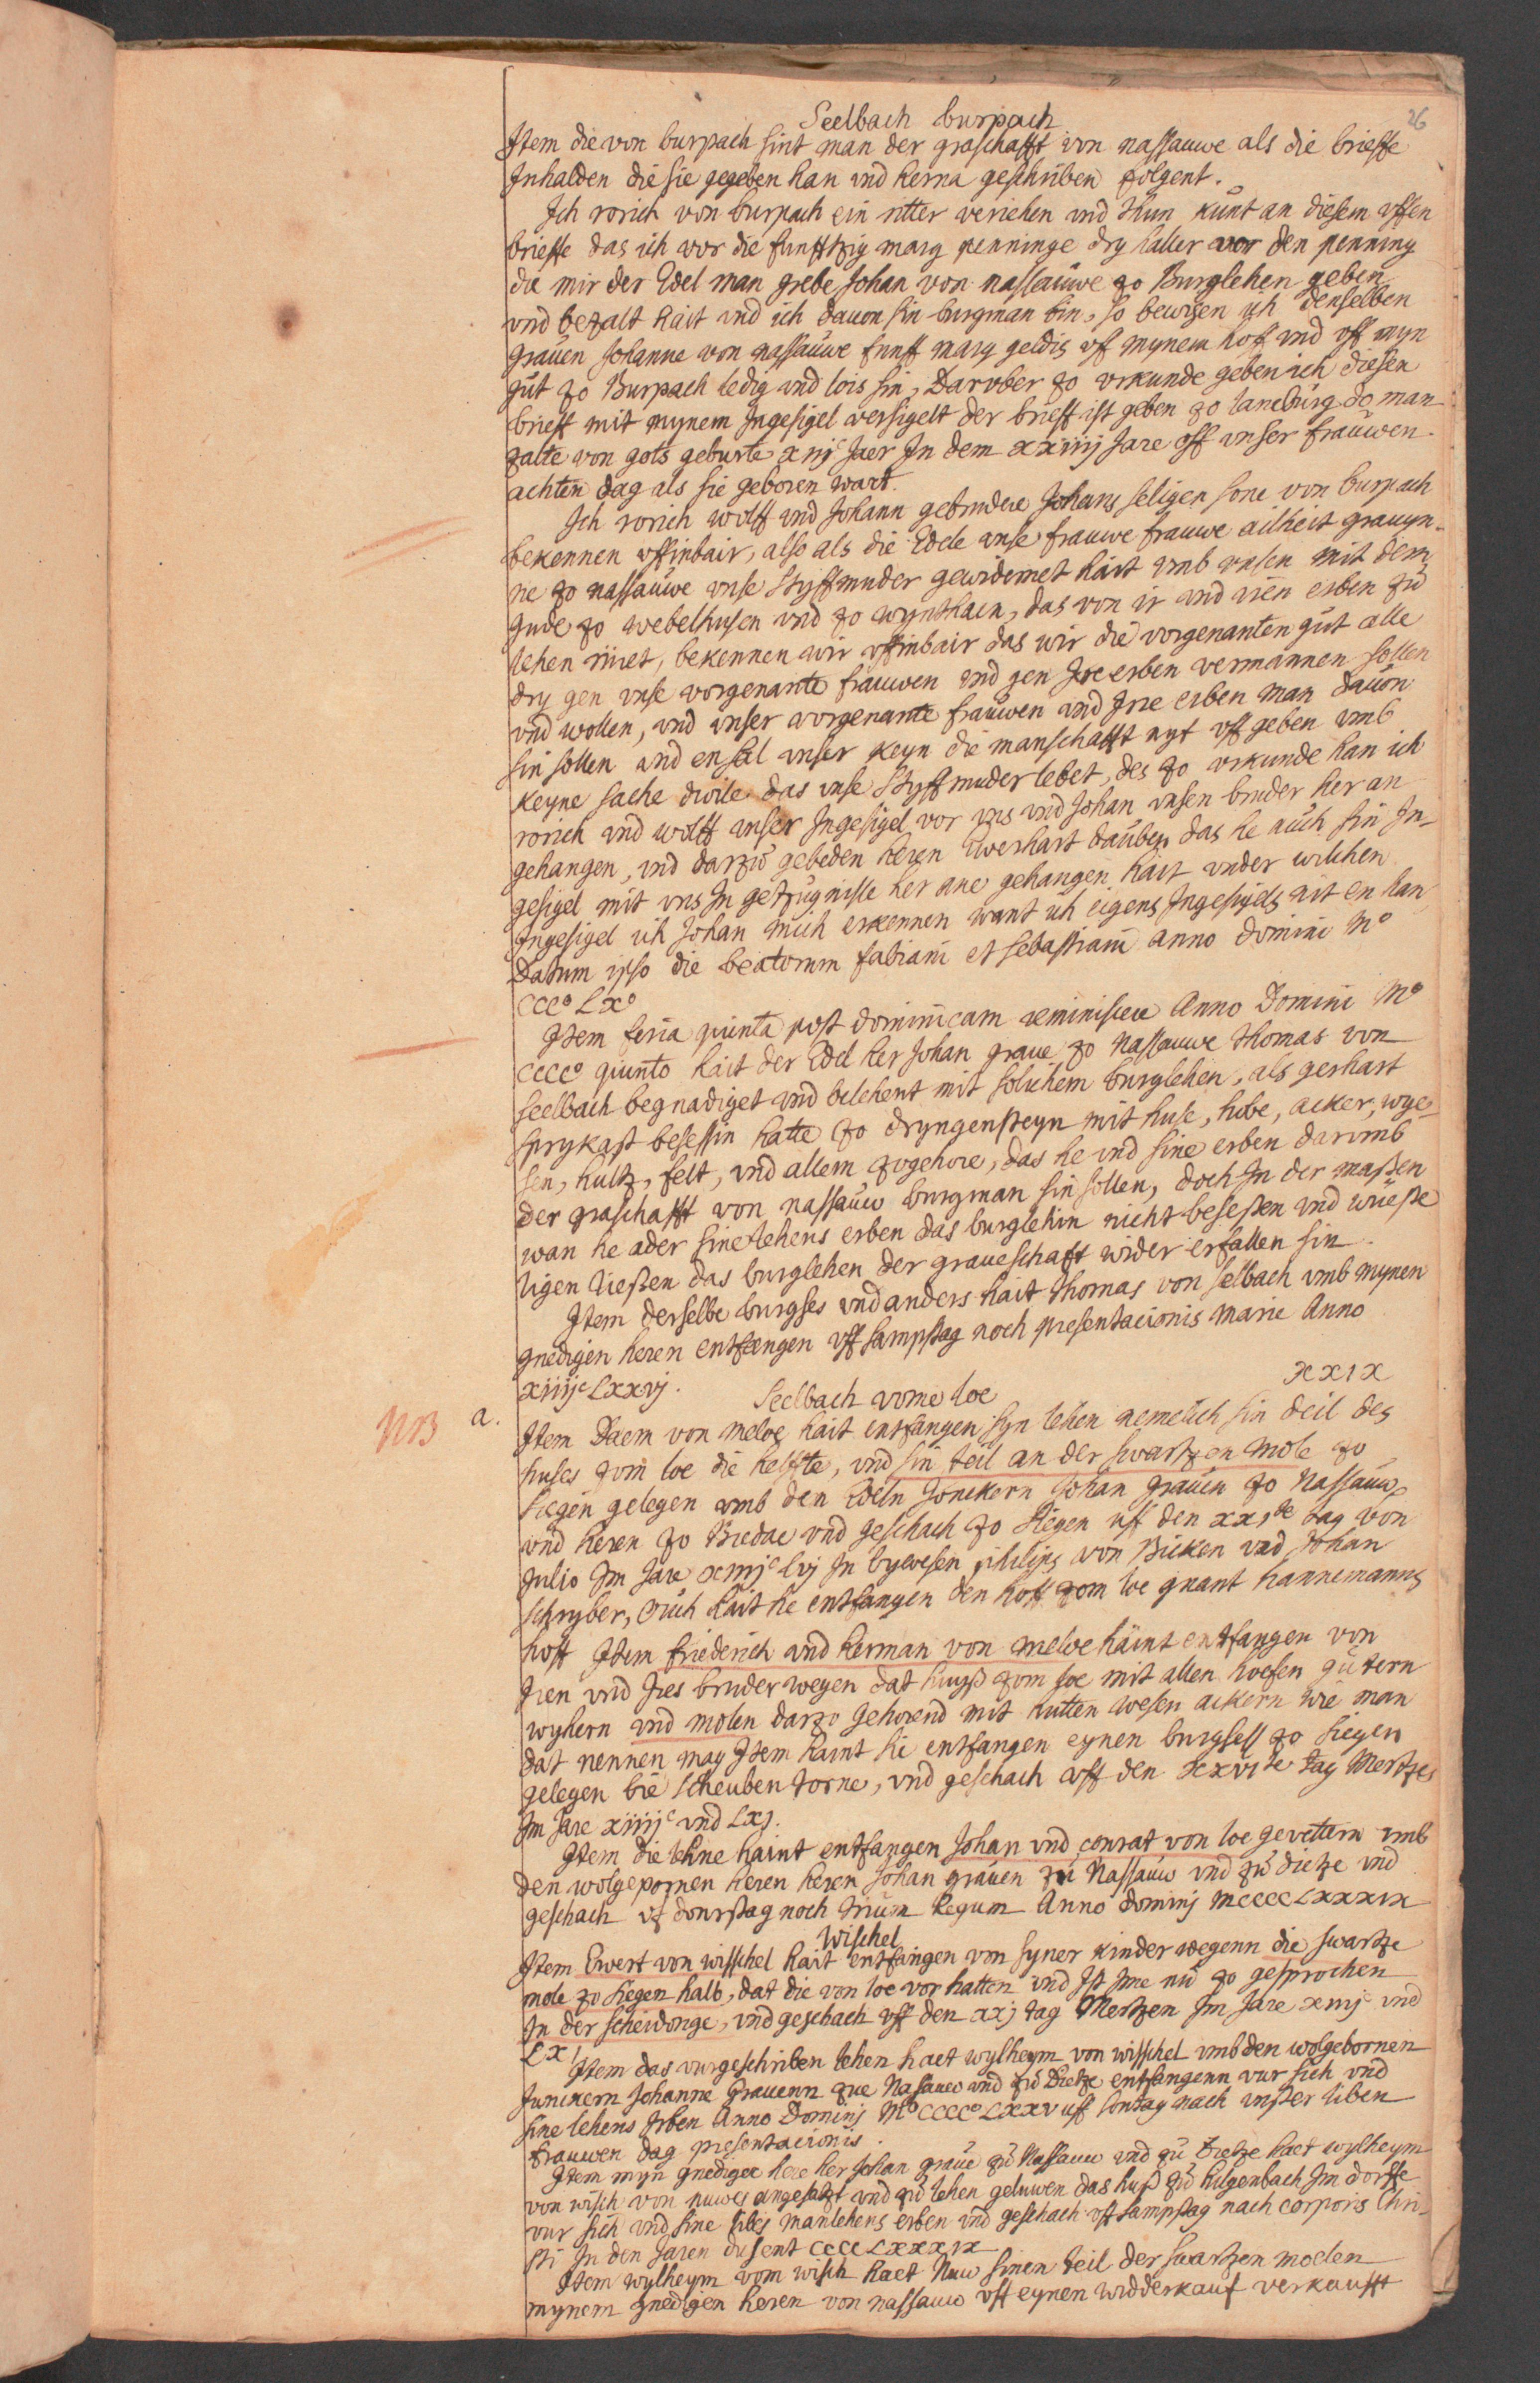 26
Seelbach burpach
Item die von burpach sint man der graschafft von nassauwe als die brieffe
Inhalden die sie gegeben han vnd herna geschriben folgent.
Ich rorich von burpach ein ritter veriehen vnd thun kunt an diesem vffen
brieffe das ich vor die funfftzig marg penninge dry haller vor den penning
die mir der Edel man grebe Johan von nassauwe zo Burglehen geben
vnd bezalt hait vnd ich dauon sin burgman bin, so bewisen ich denselben
grauen Johanne von nassauwe funff marg geldis vf mynem hof vnd vff myn
gut zo Burpach ledig vnd lois sin, Darvber zo vrkunde geben ich diesen
brieff mit mynem Ingesigel versigelt der brieff ist geben zo laneburg do man
zalte von gots geburte xiijc Jaer In dem xxiiij Jare vff vnser frauwen
achten dag als sie geboren wart.
Ich rorich wolff vnd Johann gebrudere Johans seligen sone von burpach
bekennen vffinbair, also als die Edele vnse frauwe frauwe ailheit grauyn-
ne zo nassauwe vnse Styffmuder gewidemet hait vmb vnsen mit dem
gude zo webelhusen vnd zo wynthaen, das von ir vnd iren erben zu
lehen riiret, bekennen wir vffinbair das wir die vorgenanten gut alle
dry gen vnse vorgenante frauwen vnd gen Ire erben vermannen sollen
vnd wollen, vnd vnser vorgenante frauwen vnd Ire erben man dauon
sin sollen vnd ensal vnser keyn die manschafft nyt vff geben vmb
keyne sache dwile das vnse Styffmuder lebet, des zo vrkunde han ich
rorich vnd wolff vnser Ingesigel vor vns vnd Johan vnsen bruder her an
gehangen, vnd darzu gebeden heren Ewerhart dauben das he auch sin In-
gesigel mit vns In getzugnisse her ane gehangen hait vnder wilchen
Ingesigel ich Johan mich erkennen want ich eigens Ingesigels nit en han
Datum ipso die beatorum fabiani et sebastiani anno domini Mo
ccco Lxo
Item feria quinta post dominicam reminiscere Anno Domini Mo
cccco quinto hait der Edel her Johan graue zo Nassauwe thomas von
seelbach begnadiget vnd belehent mit solichem burglehen, als gerhart
sprykast besessin hatte zo dryngensteyn mit huse, hobe, acker, wye-
sen, hultz, felt, vnd allem zogehore, das he vnd sine erben darumb
der graschafft von nassauw burgman sin sollen, doch In der maßen
wan he ader sine lehens erben das burglehin nicht beseßen vnd wueste
ligen ließen das burglehen der graueschaft wider erfallen sin.
Item derselbe burgses vnd anders hait thomas von selbach vmb mynen
gnedigen heren entfangen vff sampstag noch presentacionis marie Anno
xiiijc Lxxvj.
Seelbach vome loe
xxix
NB
a.
Item Daem von meloe hait entfangen syn lehen nemelich sin deil des
huses zom loe die helffte, vnd sin teil an der swartzen mole zo
Siegen gelegen vmb den Edeln Jonckern Johan grauen zo Nassauw
vnd heren zo Bredae vnd geschach zo Siegen uff den xxite tag von
Julio Im Jare xiiijc lvj In bywesen philips von Bicken vnd Johan
schryber, Ouch hait he entfangen den hoff zom loe gnant hannemanns
hoff Item friederich vnd herman von meloe haint entfangen von
Iren vnd Ires bruder wegen dat huyß zom loe mit allen hoefen gutern
wyhern vnd molen darzo gehorend mit hutten wesen ackern wie man
dat nennen mag Item haint sie entfangen eynen burgseß zo Siegen
gelegen bie scheuben torne, vnd geschach vff den xxvite tag Mertzes
Im Jare xiiijc vnd Lxj.
Item die lehne haint entfangen Johan vnd conrat von loe gevettern vmb
den wolgepornen heren heren Johan grauen zu Nassauw vnd zu dietze vnd
geschach vf donrstag noch trium Regum Anno dominj mccccLxxxix
Wischel
Item Ewert von wisschel hait entfangen von syner kinder wegenn die swartze
mole zo siegen halb, dat die von loe vor hatten vnd Ist Ime nu zo gesprochen
In der scheidonge, vnd geschach vff den xxj tag Mertzen Im Jare xiiijc vnd
Lxj
Item das vurgeschriben lehen haet wylheym von wisschel vmb den wolgebornen
Junckern Johanne Grauenn zue Nassauw vnd zu Dietze entfangenn vur sich vnd
sine lehens Erben Anno Dominj Mo cccco Lxxv uff sontag nach vnser liben
frauwen dag presentacionis.
Item myn gnediger here her Johan graue zu Nassauw vnd zu Dietze haet wylheym
von wisch von nuwes angesatzt vnd zu lehen geluwen das huß zu hilgenbach Im dorffe
vur sich vnd sine libes manlehens erben vnd geschach vff sampstag nach corporis Chri-
sti In den Jaren dusent ccccLxxxix
Item wylheym vom wisch haet Nuw sinen teil der swartzen moelen
mynem gnedigen heren von nassauw vff eynen widderkauf verkaufft